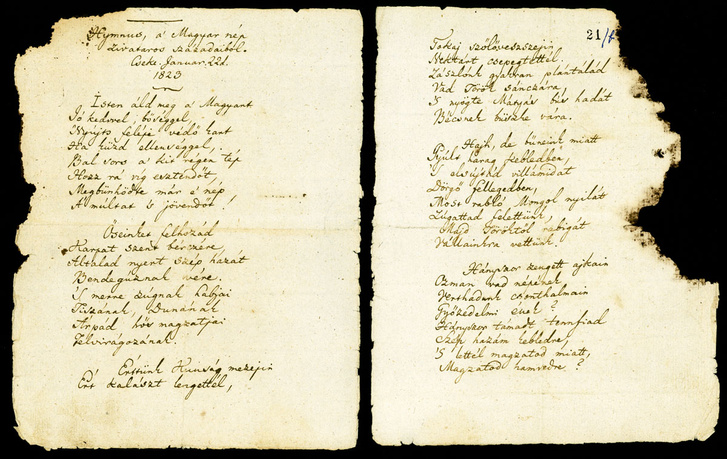 Hymnus, a' Magyar nép
zivataros századaiból.
Cseke. Januar. 22d.
1823
Isten áld meg a' Magyart
Jó kedvvel, bőséggel,
Nyújts feléje védő kart
Ha küzd ellenséggel,
Bal sors a' kit régen tép
Hozz rá víg esztendőt,
Megbűnhödte már e' nép
A' multat 's jövendőt!
Őseinket felhozád
Kárpát szent bérczére,
Általad nyert szép hazát
Bendegúznak vére.
'S merre zúgnak habjai
Tiszának, Dunának
Árpád hős magzatjai
Felvirágozának.
Értünk Kunság mezején
Ért kalászt lengettél,
21/
Tokaj szőlővesszejin
Nektárt csepegtettél.
Zászlónk gyakran plántálád
Vad Török sánczára,
'S nyögte Mátyás bús hadát
Bécsnek büszke vára.
Hajh, de bűneink miatt
Gyúlt harag kebledben,
'S elsújtád villámidat
Dörgő fellegedben,
Most rabló Mongol nyilát
Zúgattad felettünk,
Majd Töröktől rabigát
Vállainkra vettünk.
Hányszor zengett ajkain
Ozman vad népének
Vert hadunk csonthalmain
Győzedelmi ének?
Hányszor támadt tennfiad
Szép hazám kebledre,
'S lettél magzatod miatt,
Magzatod hamvedre?